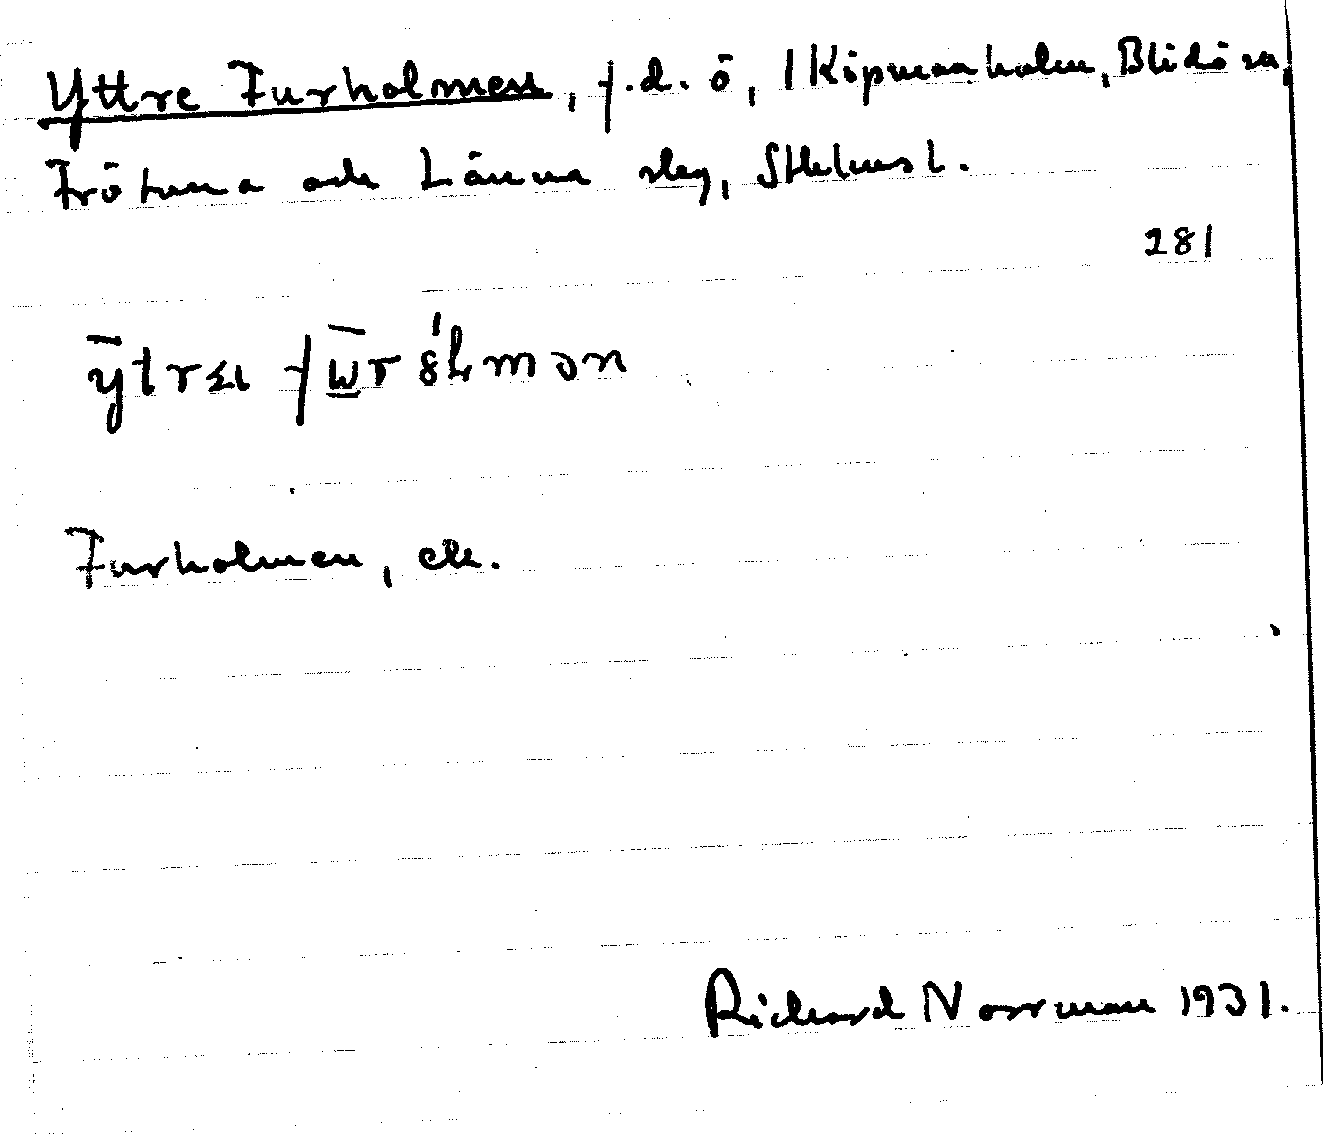 Yttre Furholmen, f.d. ö, 1 Köpmanholm, Blidö sn,
Frötuna och Länna slag, Sthlms l.
281
Furholmen, etc.
Richard Norrman 1931.